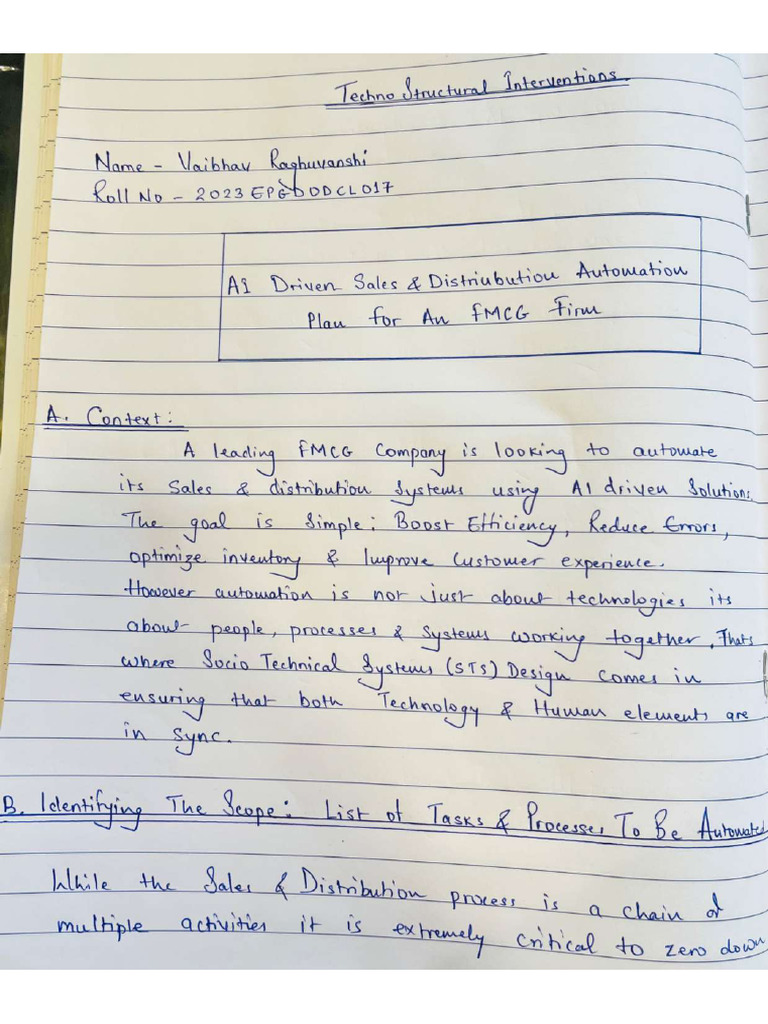 Techno Structural Interventions.
Name - Vaibhav Raghuvanshi
Roll No - 2023EPGDODCL017
AI Driven Sales & Distriubution Automation
Plan for An FMCG Firm
A. Context:
A leading FMCG Company is looking to automate
its Sales & distribution Systems using AI driven Solutions.
The goal is Simple: Boost Efficiency, Reduce Errors,
optimize inventory & Improve Customer experience.
However automation is not just about technologies its
about people, processes & Systems working together. Thats
where Socio Technical Systems (STS) Design comes in
ensuring that both Technology & Human elements are
in Sync.
B. Identifying The Scope: List of Tasks & Processes To Be Automated
While the Sales & Distribution process is a chain of
multiple activities it is extremely critical to zero down